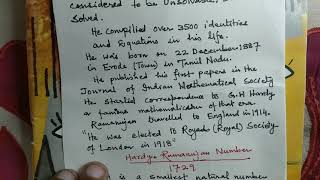 considered to be Unsolvable,
Solved.
He Compiled over 3500 identities
and Equations in his life.
He was born on 22 December 1887
in Erode (Town) in Tamil Nadu.
He published his first papers in the
Journal of Indian Mathematical Society
He started correspondence to G.H Hardy
a famous mathematician of that era
Ramanujan travelled to England in 1914.
"He was elected to Royal (Royal) Society
of London in 1918"
Hardy-Ramanujan Number
1729
is a smallest natural number